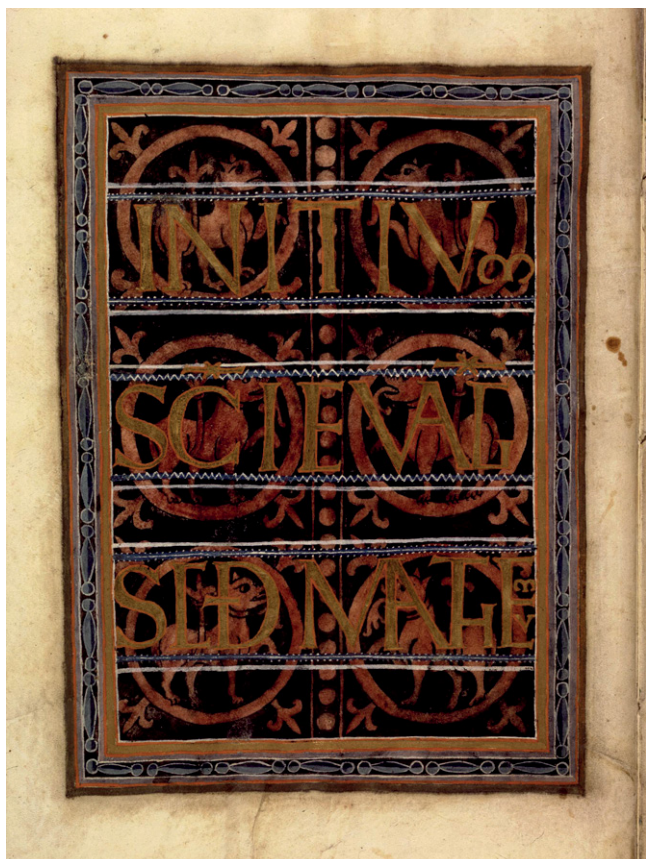 INITIVM
SC̄I EVAḠ
SEĐ MATHE